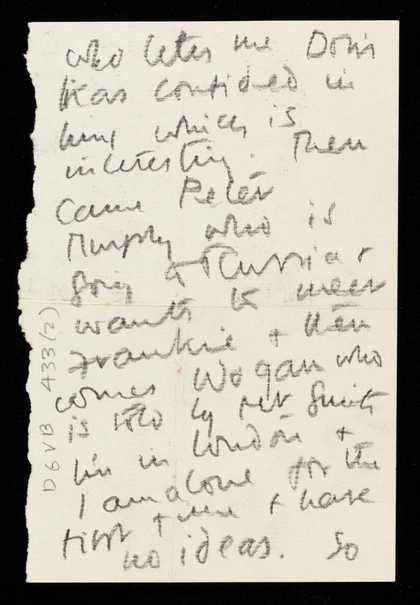 who lets me Doris
has confided in
him which is
interesting. Then
came Peter
Murphy who is
going to Russia +
wants to meet
Frankie + then
comes Wogan who
is told by Peter Smith
his in London +
I am alone for the
first time + have
no ideas. So
D6VB 433(2)